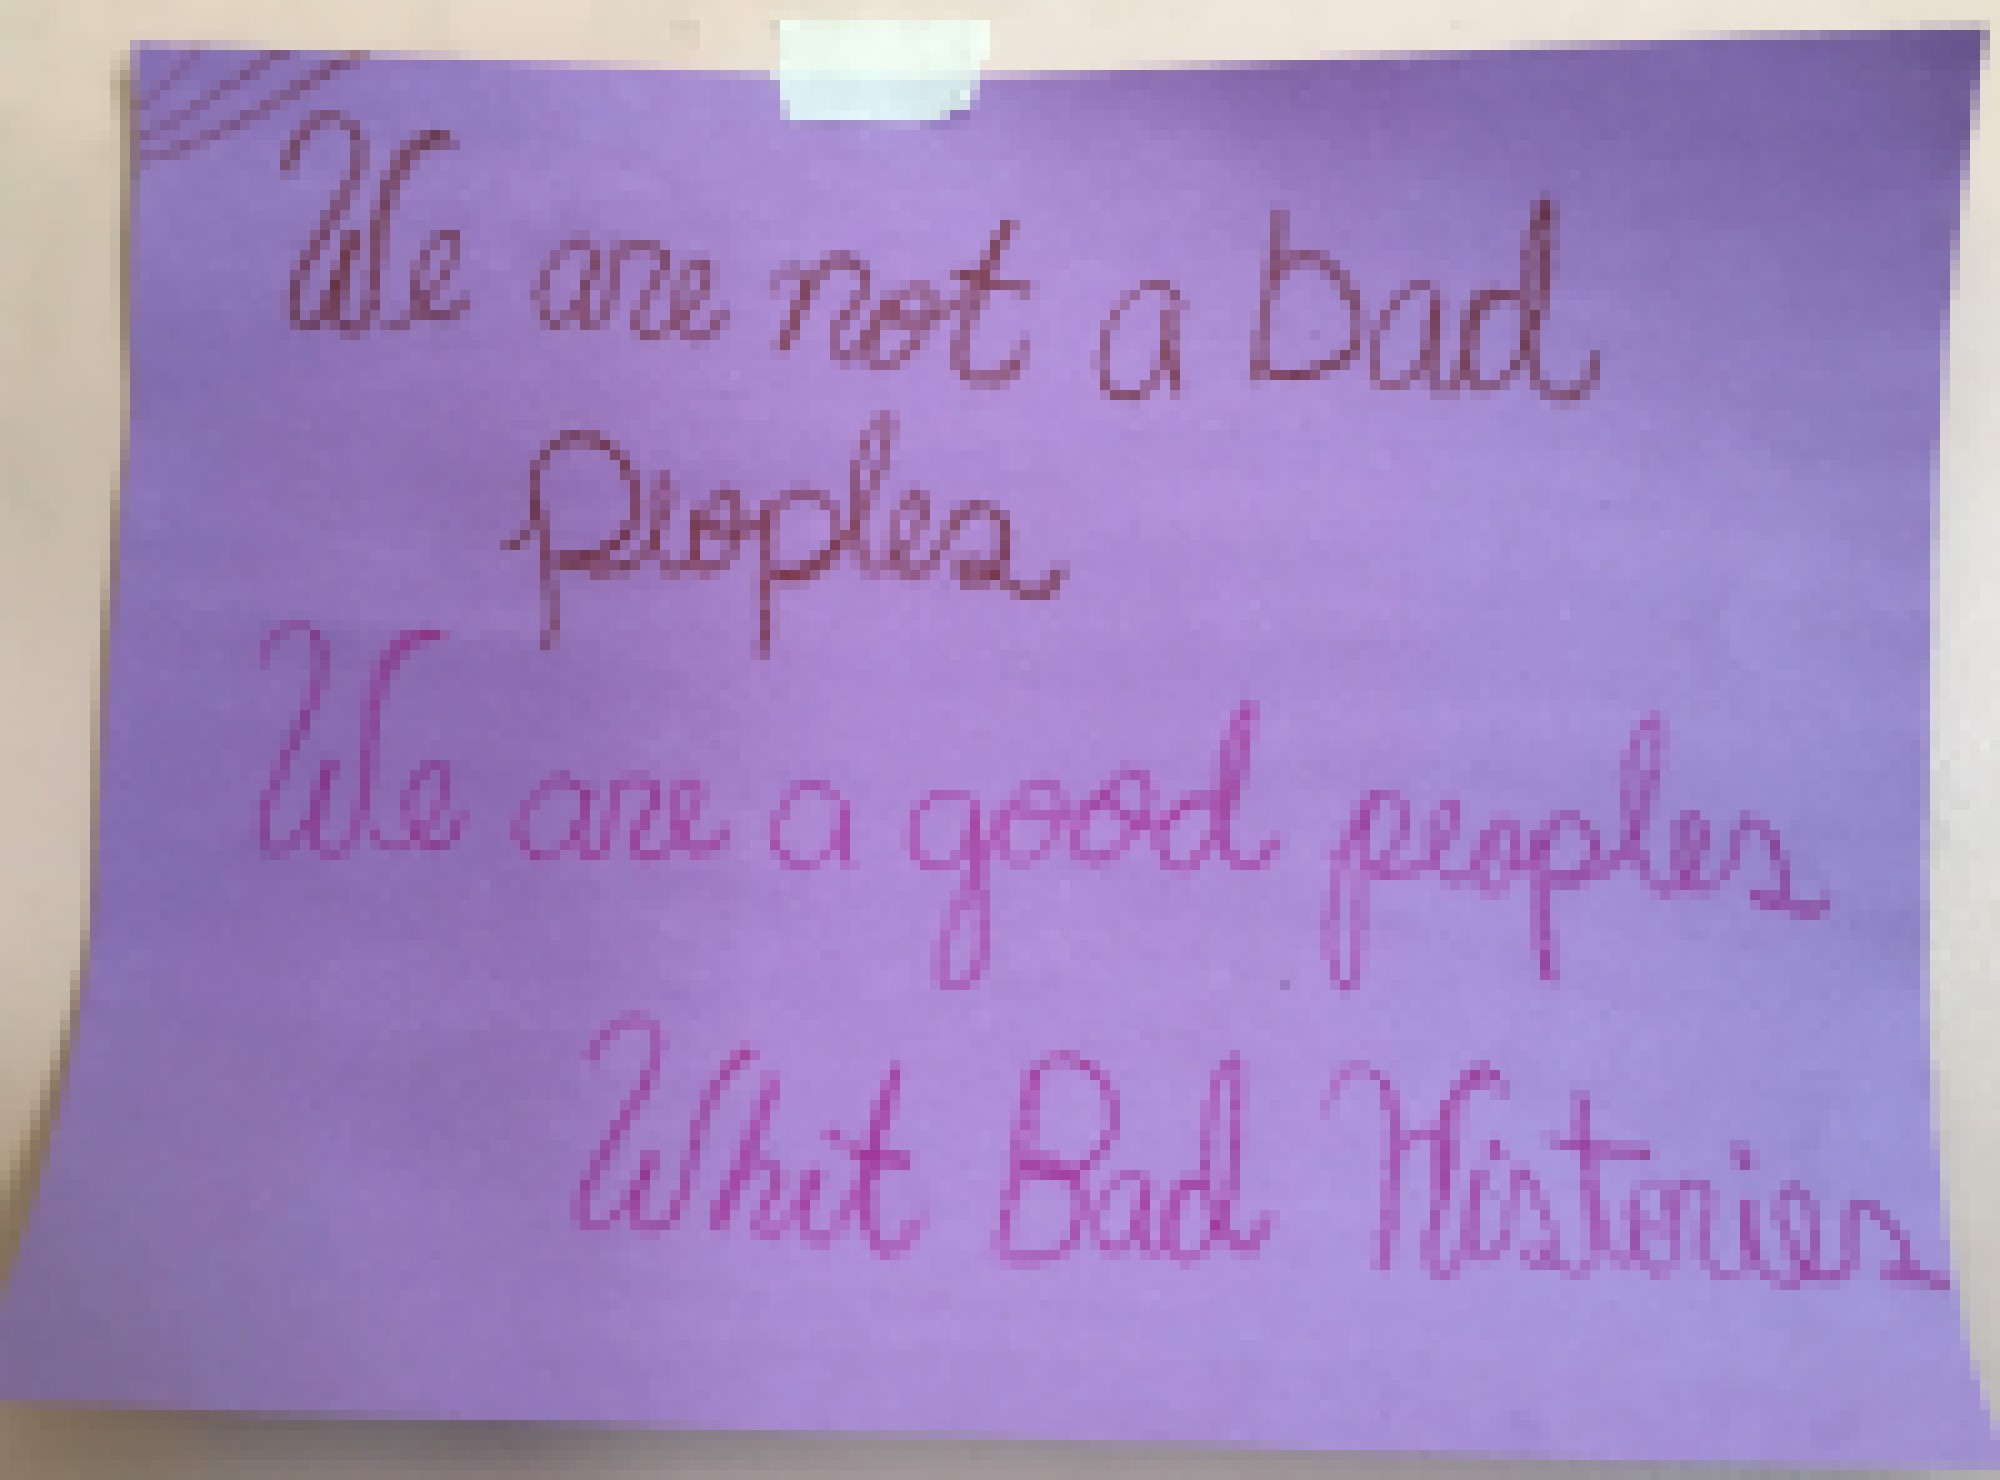 We are not a bad
peoples
We are a good peoples
Whit Bad Histories